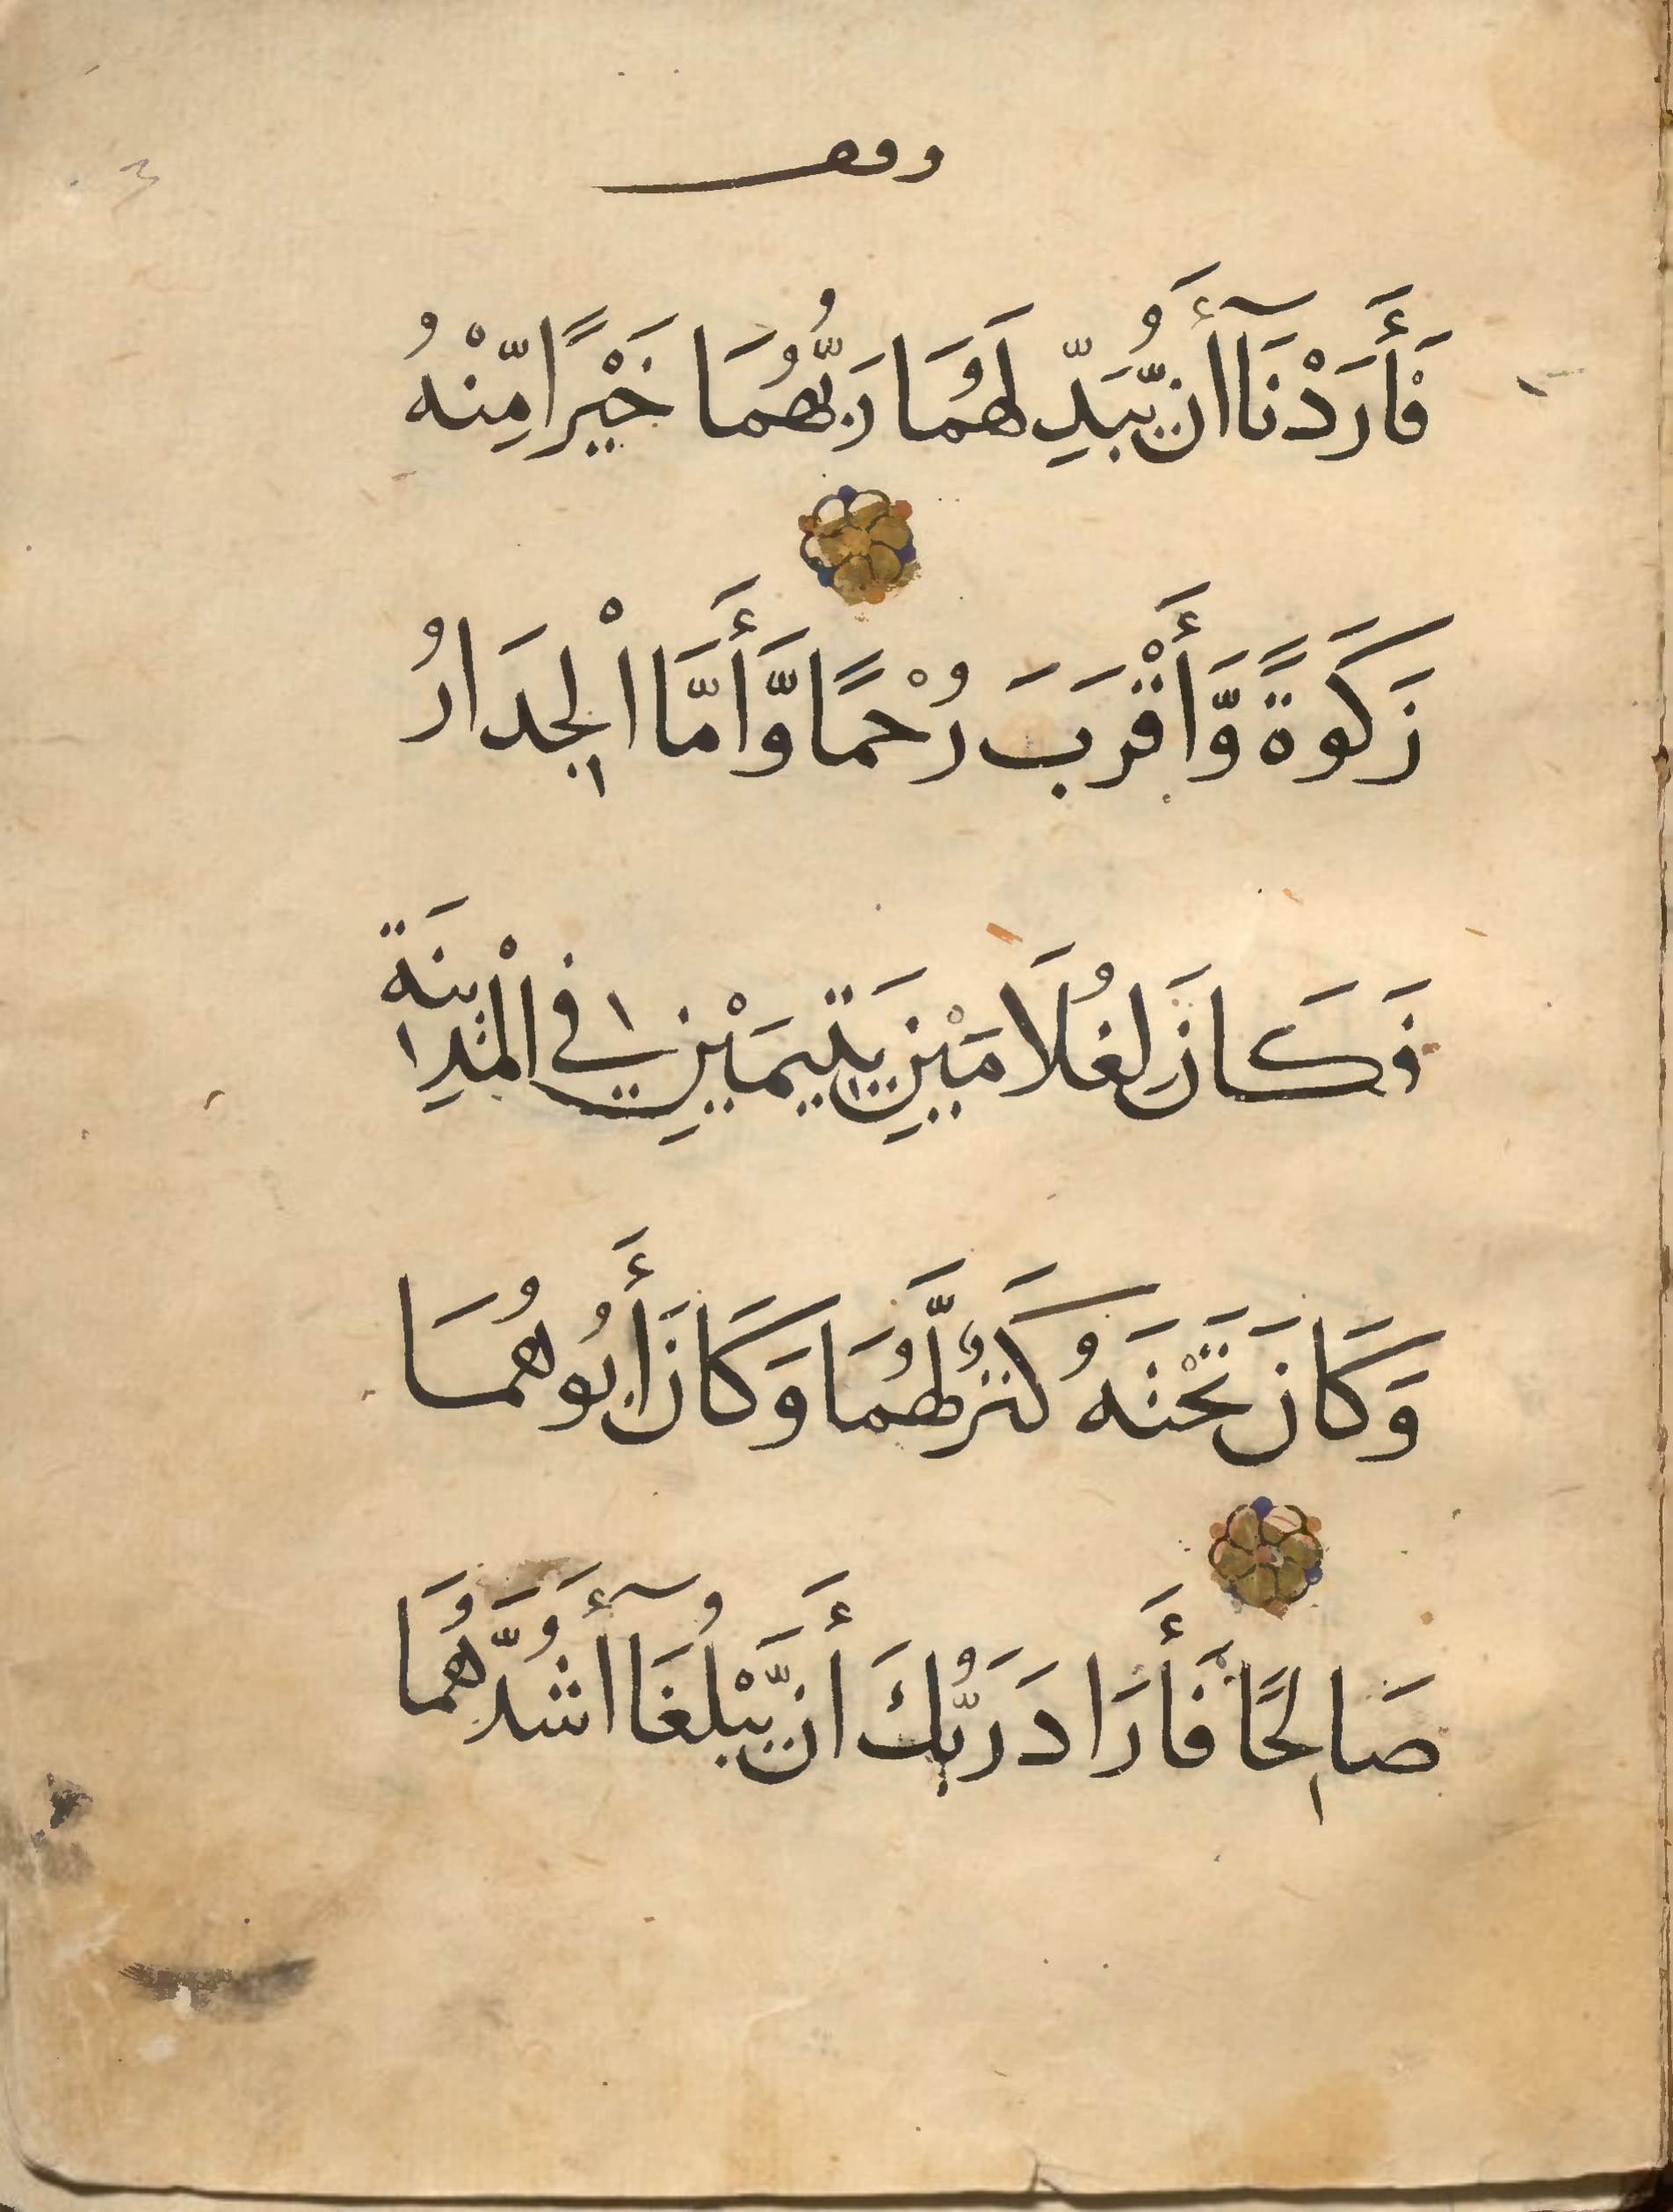 وقف
فَأَرَدْنَآ أَن يُّبَدِّلَهُمَا رَبُّهُمَا خَيْرًا مِّنْهُ
زَكَوةً وَّأَقْرَبَ رُحْمًا وَّأَمَّا الْجِدَارُ
فَكَانَ لِغُلَامَيْنِ يَتِيمَيْنِ فِي الْمَدِينَةِ
وَكَانَ تَحْتَهُ كَنْزٌ لَّهُمَا وَكَانَ أَبُوهُمَا
صَالِحًا فَأَرَادَ رَبُّكَ أَن يَّبْلُغَآ أَشُدَّهُمَا